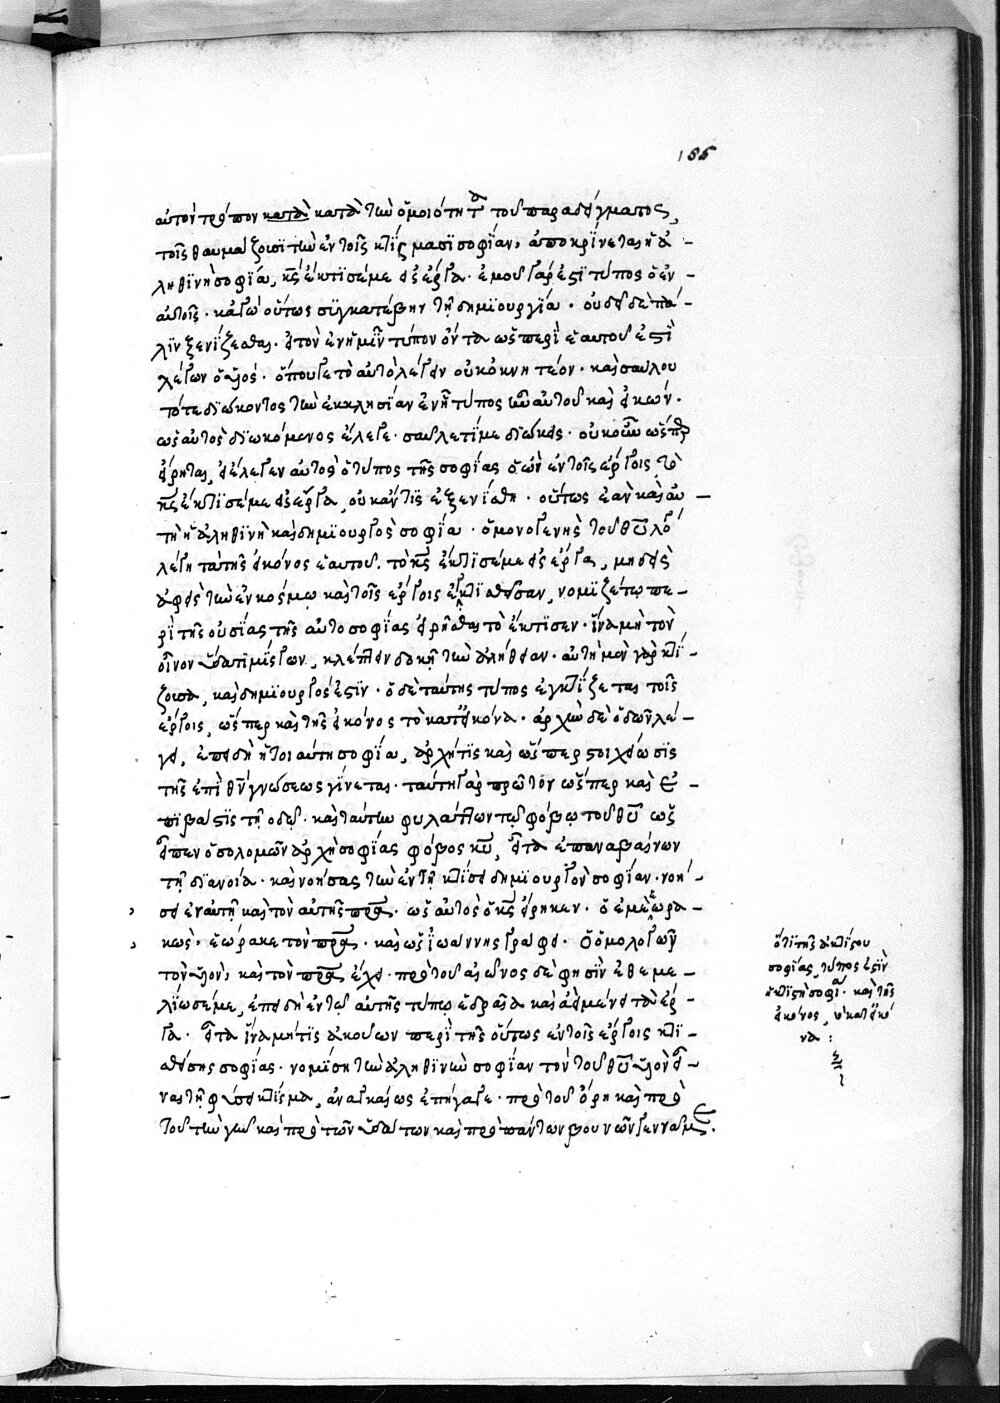 186
αυτὸν τρόπον κατὰ κατὰ τὴν ὁμοιότητα τοῦ παραδείγματος,
τοῖς θαυμάζουσι τὴν ἐν τοῖς κτίσμασι σοφίαν, ἀποκρίνεται ἡ ἀ-
ληθινὴ σοφία, κς ἔκτισέ με εἰς ἔργα. ἐμοῦ γάρ ἐστι τύπος ὁ ἐν-
αὐτοῖς. κἀγὼ οὕτως συγκατέβην τῇ δημιουργία. οὐ δεῖ δὲ πά-
λιν ξενίζεσθαι. εἰ τὸν ἐν ἡμῖν τύπον ὄντα ὡς περὶ ἑαυτοῦ ἐστὶ
λέγων ὁ υἱός. ὅπου γε τὸ αὐτὸ λέγειν οὐκ ὀκνητέον. καὶ σαύλου
τότε διώκοντος τὴν ἐκκλησίαν ἐν ᾗ τύπος ἦν αὐτοῦ καὶ εἰκών.
ὡς αὐτὸς διωκόμενος ἔλεγε. σαῦλε τί με διώκεις. οὐκοῦν ὥσπερ
εἴρηται, εἰ ἔλεγεν αὐτὸς ὁ τύπος τῆς σοφίας ὁ ὢν ἐν τοῖς ἔργοις, τὸ
κς ἔκτισέ με εἰς ἔργα, οὐκ ἄν τις ἐξενίσθη. οὕτως ἐὰν καὶ αὐ-
τὴ ἡ ἀληθινὴ καὶ δημιουργὸς σοφία. ὁ μονογενὴς τοῦ θυ λό
λέγῃ τὰ τῆς εἰκόνος ἑαυτοῦ. τὸ κς ἔκτισέ με εἰς ἔργα, μηδεὶς
ἀφεὶς τὴν ἐν κόσμω καὶ τοῖς ἔργοις ἐγκτισθεῖσαν, νομιζέτω πε-
ρὶ τῆς οὐσίας τῆς αὐτοσοφίας εἰρῆσθαι τὸ ἔκτισεν. ἵνα μὴ τὸν
οἶνον ὕδατι μίσγων, κλέπτειν δοκῇ τὴν ἀλήθειαν. αὐτὴ μὲν γὰρ κτί-
ζουσα, καὶ δημιουργός ἐστιν. ὁ δὲ ταύτης τύπος ἐγκτίζεται τοῖς
ἔργοις, ὥσπερ καὶ τῆς εἰκόνος τὸ κατ' εἰκόνα. ἀρχὴν δὲ ὁδῶν λέ-
γει, ἐπειδὴ ἡ τοιαύτη σοφία, ἀρχή τις καὶ ὥσπερ στοιχείωσις
τῆς ἐπὶ θν γνώσεως γίνεται. ταύτῃ γὰρ πρῶτον ὥσπερ καὶ ἐ-
πιβάς τις τῇ ὁδῷ. καὶ ταύτην φυλάττων τῷ φόβῳ τοῦ θυ ὡς
εἶπεν ὁ σολομῶν ἀρχὴ σοφίας φόβος κυ, εἶτα ἐπαναβαίνων
τῇ διανοίᾳ. καὶ νοήσας τὴν ἐν τῇ κτίσει δημιουργὸν σοφίαν. νοή-
σει ἐν αὐτῇ καὶ τὸν αὐτῆς πρα. ὡς αὐτὸς ὁ κς εἴρηκεν. ὁ ἐμὲ ἑωρα
κὼς, ἑώρακε τὸν πρα. καὶ ὡς ἰωάννης γράφει. ὁ ὁμολογῶν
τὸν υἱὸν, καὶ τὸν πρα ἔχει. πρὸ τοῦ αἰῶνος δέ φησὶν ἐθεμε-
λίωσέ με, ἐπειδὴ ἐν τῷ αὐτῆς τύπῳ ἑδραῖα καὶ ἀεὶ μένει τὰ ἔρ-
γα. εἶτα ἵνα μή τις ἀκούων περὶ τῆς οὕτως ἐν τοῖς ἔργοις κτι-
σθείσης σοφίας. νομίσῃ τὴν ἀληθινὴν σοφίαν τὸν τοῦ θυ υἱὸν εἶ-
ναι τῇ φύσει κτίσμα, ἀναγκαίως ἐπήγαγε. πρὸ τοῦ ὄρη καὶ πρὸ
τοῦ τὴν γῆν καὶ πρὸ τῶν ὑδάτων καὶ πρὸ πάντων βουνῶν γεννᾷ με.
ὅτι τῆς ἀκτίστου
σοφίας τύπος ἐστὶν
ἡ κτιστὴ σοφία. καὶ τῆς
εἰκόνος, τὸ κατ' εἰκό
να :